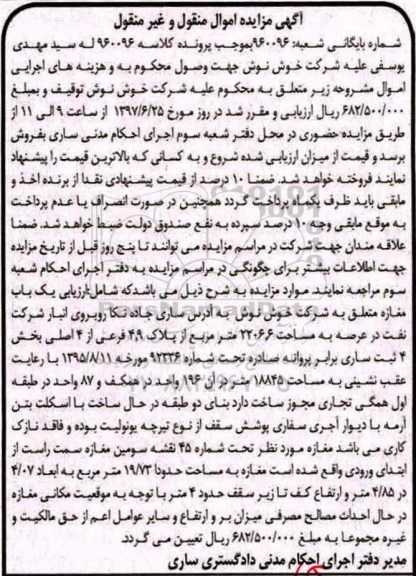 آگهی مزایده اموال منقول و غیر منقول
شماره بایگانی شعبه: ۹۶۰۰۹۶بموجب پرونده کلاسه ۹۶۰۰۹۶ له سید مهدی
یوسفی علیه شرکت خوش نوش جهت وصول محکوم به و هزینه های اجرایی
اموال مشروحه زیر متعلق به محکوم علیه شرکت خوش نوش توقیف و بمبلغ
۶۸۲/۵۰۰/۰۰۰ ریال ارزیابی و مقرر شد در روز مورخ ۱۳۹۷/۶/۲۵ از ساعت ۹ الی ۱۱ از
طریق مزایده حضوری در محل دفتر شعبه سوم اجرای احکام مدنی ساری بفروش
برسد و قیمت از میزان ارزیابی شده شروع و به کسانی که بالاترین قیمت را پیشنهاد
نمایند فروخته خواهد شد. ضمنا ۱۰ درصد از قیمت پیشنهادی نقدا از برنده اخذ و
مابقی باید ظرف یکماه پرداخت گردد همچنین در صورت انصراف یا عدم پرداخت
به موقع مابقی وجه ۱۰ درصد سپرده به نفع صندوق دولت ضبط خواهد شد. ضمنا
علاقه مندان جهت شرکت در مراسم مزایده می توانند تا پنج روز قبل از تاریخ مزایده
جهت اطلاعات بیشتر برای چگونگی در مراسم مزایده به دفتر اجرای احکام شعبه
سوم مراجعه نمایند. موارد مزایده به شرح ذیل می باشد که شامل:ارزیابی یک باب
مغازه متعلق به شرکت خوش نوش به آدرس ساری جاده نکا روبروی انبار شرکت
نفت در عرصه به مساحت ۲۲۰۶،۶ متر مربع از پلاک ۴،۹ فرعی از ۴ اصلی بخش
۴ ثبت ساری برابر پروانه صادره تحت شماره ۹۲۳۳۶ مورخه ۱۳۹۵/۸/۱۱ با رعایت
عقب نشینی به مساحت ۱۸۸۴۵ متر بر آن ۱۹۶ واحد در همکف و ۸۷ واحد در طبقه
اول همگی تجاری مجوز ساخت دارد بنای دو طبقه در حال ساخت با اسکلت بتن
آرمه با دیوار آجری سفاری پوشش سقف از نوع تیرچه یونولیت بوده و فاقد نازک
کاری می باشد مغازه مورد نظر تحت شماره ۴۵ نقشه سومین مغازه سمت راست از
ابتدای ورودی واقع شده است مغازه به مساحت حدودا ۱۹/۷۳ متر مربع به ابعاد ۴/۰۷
در ۴/۸۵ متر و ارتفاع کف تا زیر سقف حدود ۴ متر با توجه به موقعیت مکانی مغازه
در حال احداث مصالح مصرفی میزان بر و ارتفاع و سایر عوامل اعم از حق مالکیت و
غیره مجموعا به مبلغ ۶۸۲/۵۰۰/۰۰۰ ریال تعیین می گردد.
مدیر دفتر اجرای احکام مدنی دادگستری ساری